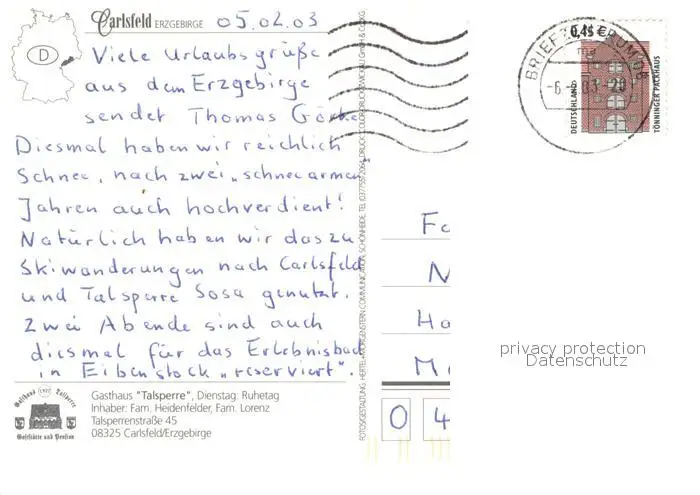 Carlsfeld ERZGEBIRGE 05.02.03
D
Viele Urlaubsgrüße
aus dem Erzgebirge
sendet Thomas
Diesmal haben wir reichlich
Schnee, nach zwei „schneearmen"
Jahren auch hochverdient!
Natürlich haben wir das zu
Skiwanderungen nach Carlsfeld
und Talsperre Sosa genutzt.
Zwei Abende sind auch
diesmal für das Erlebnisbad
in Eibenstock „reserviert".
Gasthaus Talsperre
Gaststätte und Pension
Gasthaus "Talsperre", Dienstag: Ruhetag
Inhaber: Fam. Heidenfelder, Fam. Lorenz
Talsperrenstraße 45
08325 Carlsfeld/Erzgebirge
BRIEFZENTRUM
-6.2.03-20
0,45 €
DEUTSCHLAND
TÖNNINGER PACKHAUS
Fa
N
Ha
M
0 4
privacy protection
Datenschutz